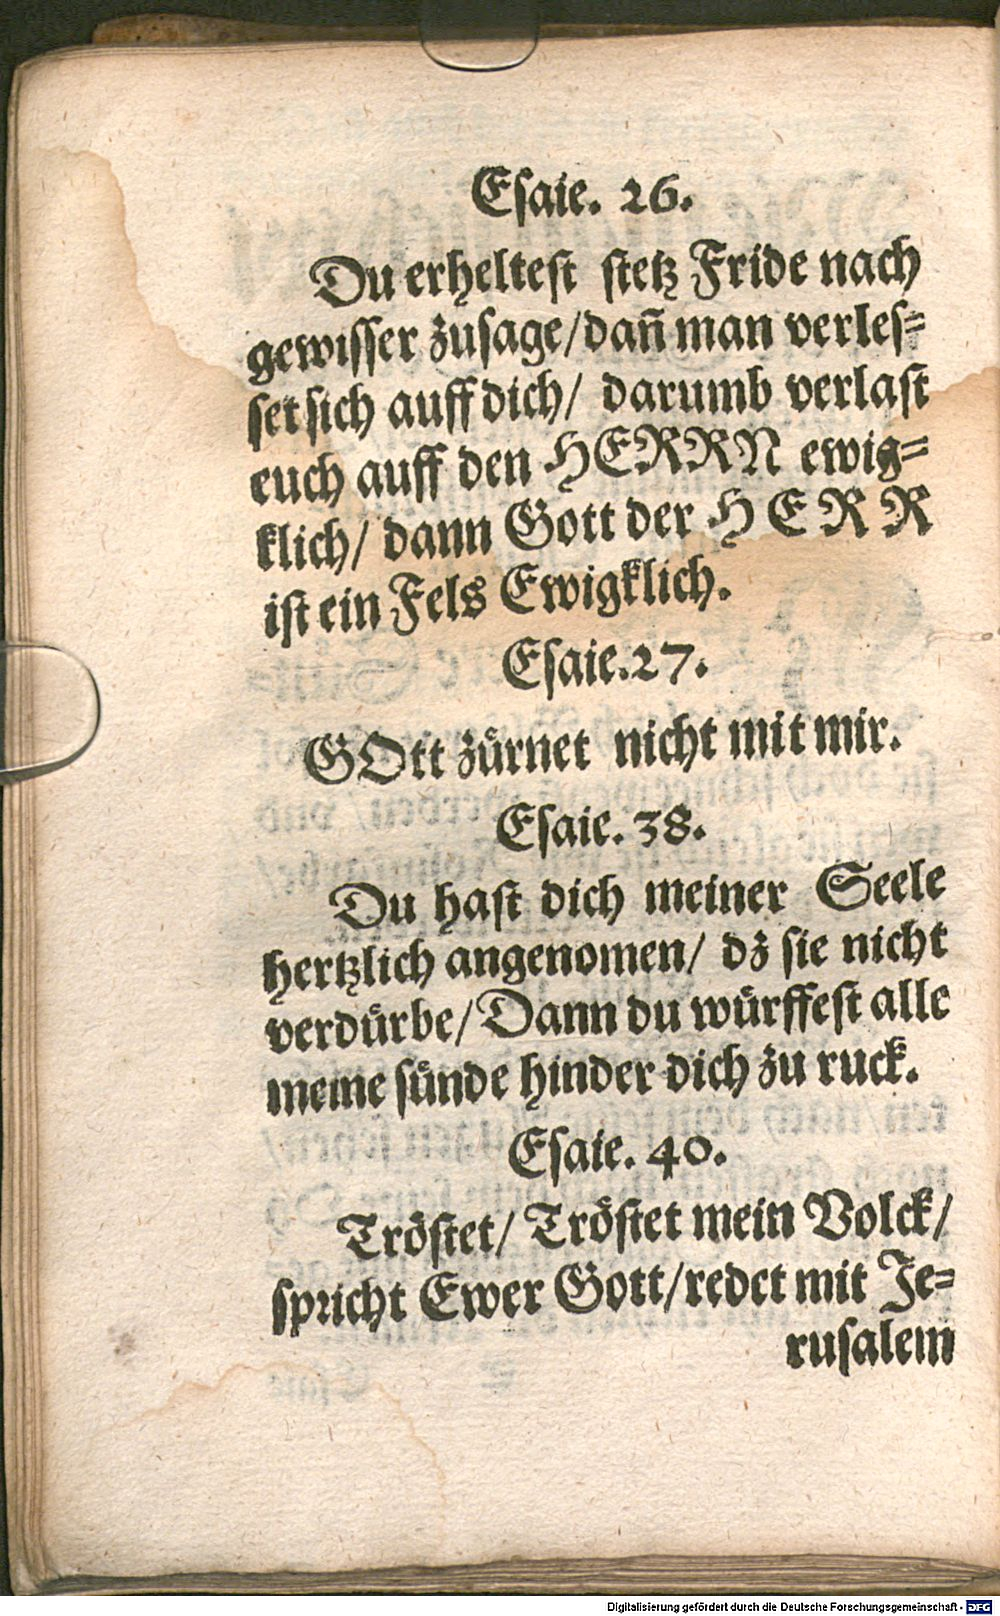 Eſaie. 26.
Du erhelteſt ſtetz Fride nach
gewiſſer zuſage/dañ man verleſ⸗
ſet ſich auff dich/ darumb verlaſt
euch auff den HERRN ewig⸗
klich/ dann Gott der HERR
iſt ein Fels Ewigklich.
Eſaie.27.
GOtt zuͤrnet nicht mit mir.
Eſaie. 38.
Du haſt dich meiner Seele
hertzlich angenomen/ dz ſie nicht
verduͤrbe/Dann du wuͤrffeſt alle
meine ſuͤnde hinder dich zu ruck.
Eſaie. 40.
Troͤſtet/ Troͤſtet mein Volck/
ſpricht Ewer Gott/redet mit Je⸗
ruſalem
Digitalisierung gefördert durch die Deutsche Forschungsgemeinschaft - DFG